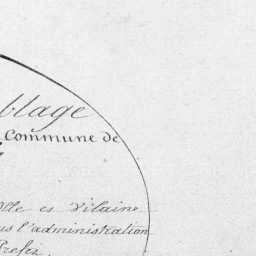 blage
Commune de
Ille es Vilaine
us l'administration
Prefet